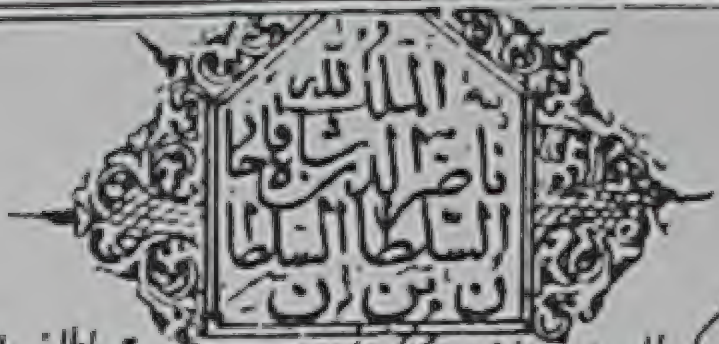 الملك لله
ناصر الدين شاه قاجار
السلطان بن السلطان